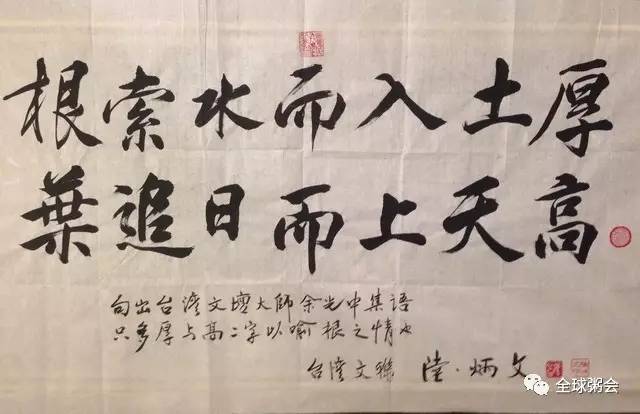 根索水而入土厚
葉追日而上天高
句出台灣文壇大師余光中集語
只多厚与高二字以喻根之情也
台灣文聯 陸·炳文
全球粥会